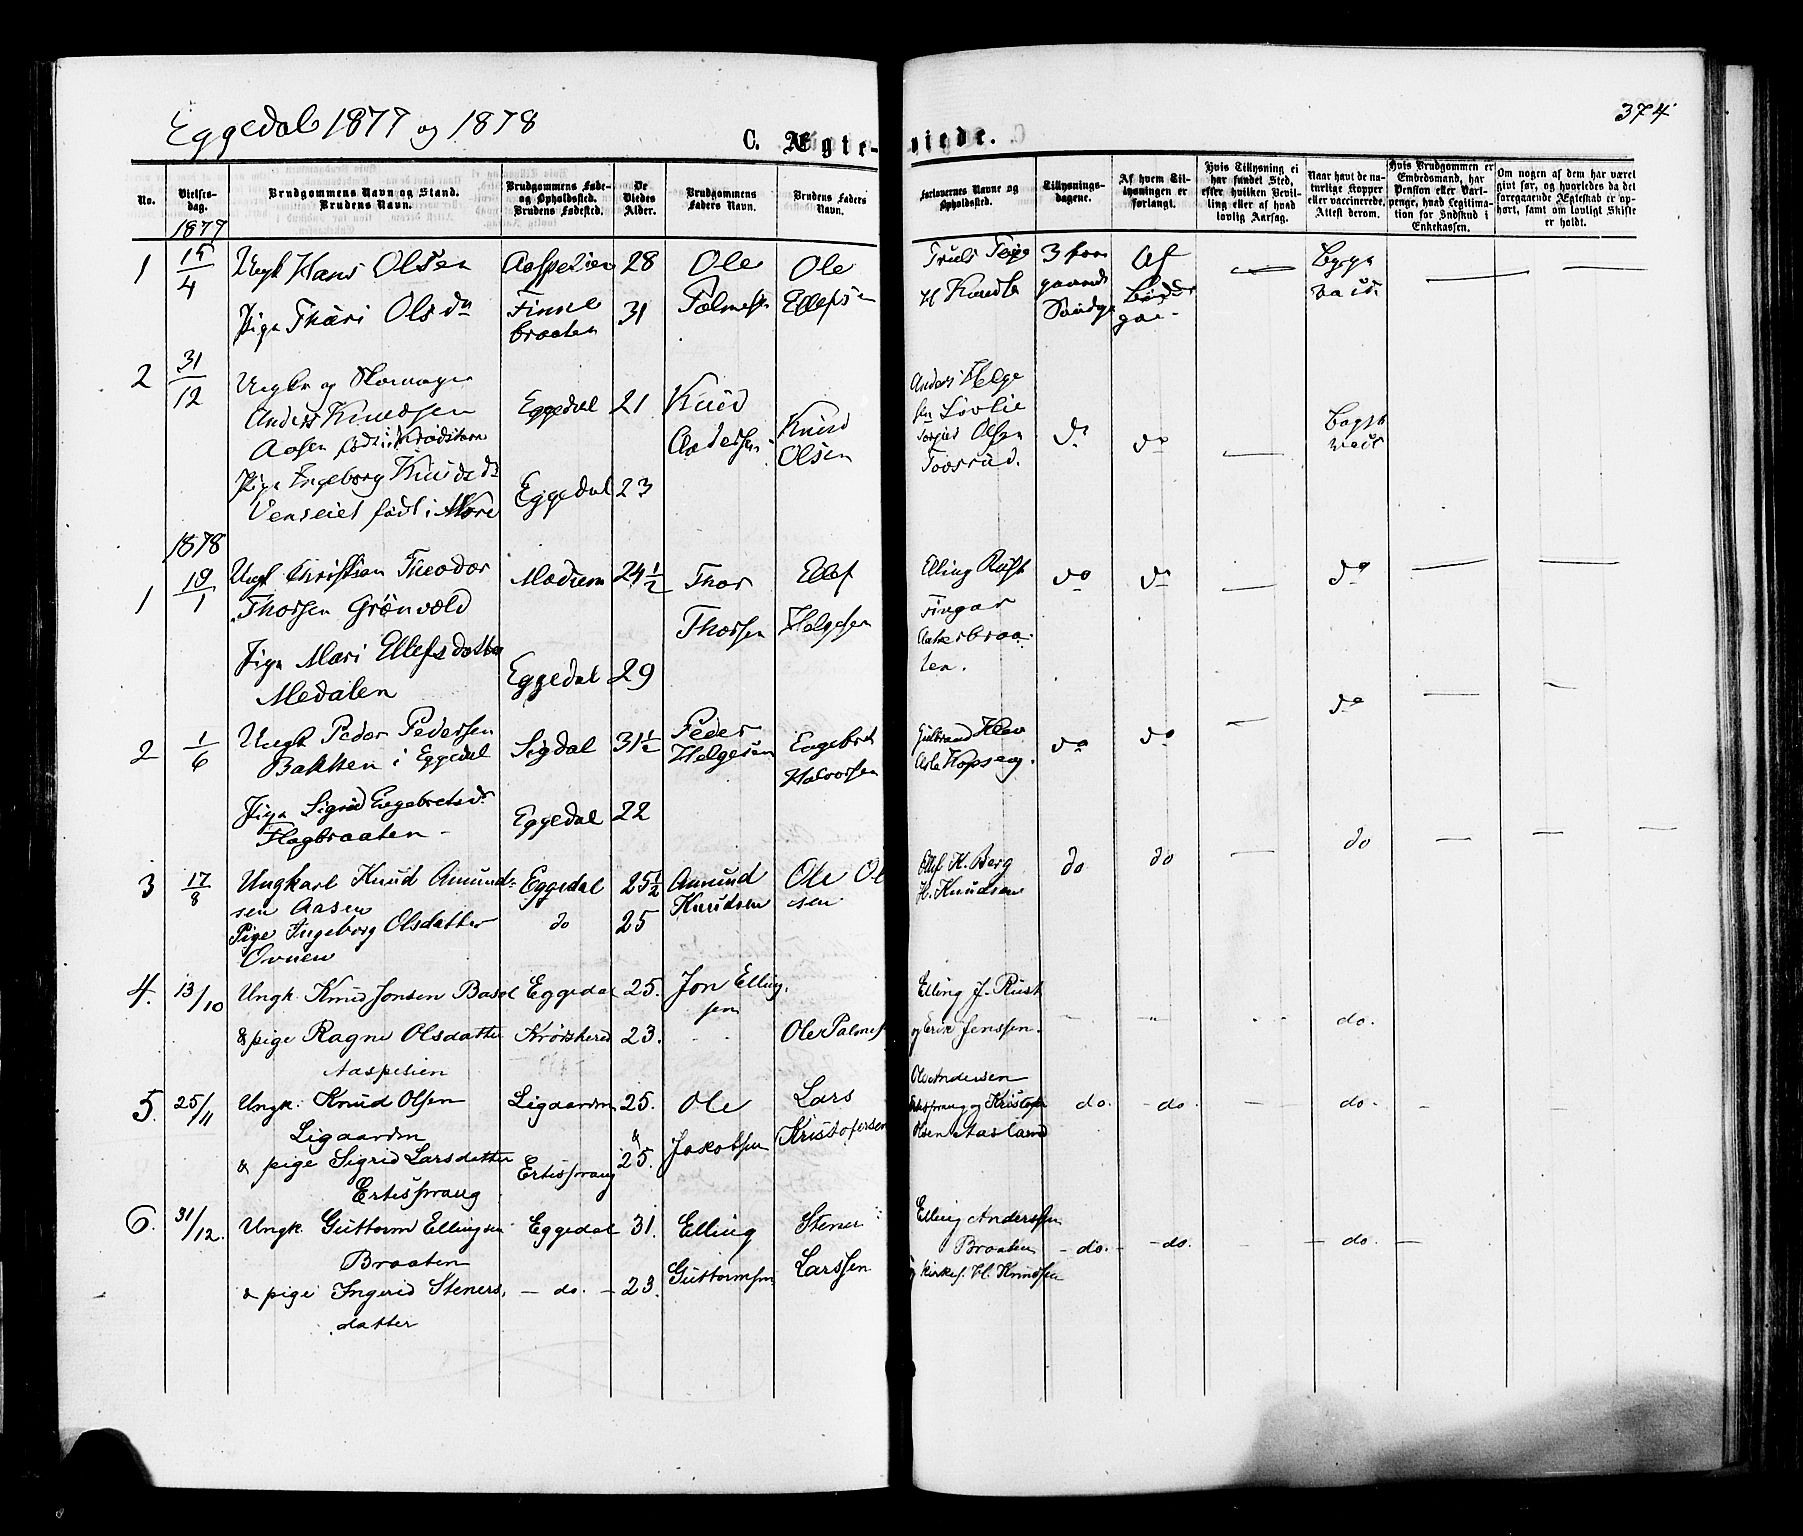 Eggedal 1877 og 1878
374
C. Ægte-viede.
No.
Vielses-dag.
Brudgommens Navn og Stand.
Brudens Navn.
Brudgommens Føde- og Opholdssted.
Brudens Fødested.
De Viedes Alder.
Brudgommens Faders Navn.
Brudens Faders Navn.
Forlovernes Navne og Opholdssted.
Tillysnings-dagene.
Af hvem Tillysningen er forlangt.
Hvis Tillysning ei har fundet Sted, efter hvilken Bevilling eller af hvad lovlig Aarsag.
Naar havt de naturlige Kopper eller vaccinerede. Attest derom.
Hvis Brudgommen er Embedsmand, har Pension eller Vartpenge, hvad Legitimation for Indskud i Enkekassen.
Om nogen af dem har været gift før, og hvorledes da det foregaaende Ægteskab er ophørt, samt om lovligt Skifte er holdt.
1877
1 15/4 Ungk Hans Olsen Aaspesien 28 Ole Ole
Palmesen Ellefsen
Pige Thari Olsdr Finnebraaten 31
H Knudsen
2 31/12 Ungkr og
Anders Knudsen Eggedal 21 Knud Andersen Knud Olsen
Aasen født i Krødsherred
Anders Helgesen Løvlie
Olsen
do do
Pige Ingeborg Knudsdr Eggedal 23
Venseiet født i Nore
1878
1 19/1 Ungk Christian Theodor Modum 24 1/2 Thor Ellef
Thorsen Grønvold Thorsen Helgesen
Elling Rust
Aakerbraaten.
do do do
Pige Mari Ellefsdatter Eggedal 29
Medalen
2 1/6 Ungk Peder Pedersen Sigdal 31 1/2 Peder Helgesen Engebret Halvorsen
Bakken i Eggedal
Gulbrand
do do do
Pige Sigrid Engebretsdr Eggedal 22
Flagbraaten
3 17/8 Ungkarl Knud Amund- Eggedal 25 1/2 Amund Ole Ol
sen Aasen Knudsen sen.
Pige Ingeborg Olsdatter do 25
Ovnen
Ellef H. Berg
H. Knudsen
do do do
4. 13/10 Ungk. Knud Jonsen Eggedal 25. Jon Ellingsen
& pige Ragne Olsdatter Krødsherred 23. Ole Palmes
Aaspesien
Elling J. Rust
og Erik Jenssen.
do.
5. 25/11 Ungk. Knud Olsen Ligaarden 25. Ole Lars
Ligaarden & Jakobsen Kristofersen
& pige Sigrid Larsdatter Ertesprang 25.
Ertesprang
Ole Andersen
Ertesprang og Kristofer
Olsen Aasland
do. - do. do.
6. 31/12. Ungk. Guttorm Ellingsen Eggedal 31. Elling Stener
Braaten Guttormsen Larssen
& pige Ingerid Steners- - do. - 23.
datter
Elling Anderssen
Braaten
og kirkes. H. Knudsen
- do. - - do. - do. -